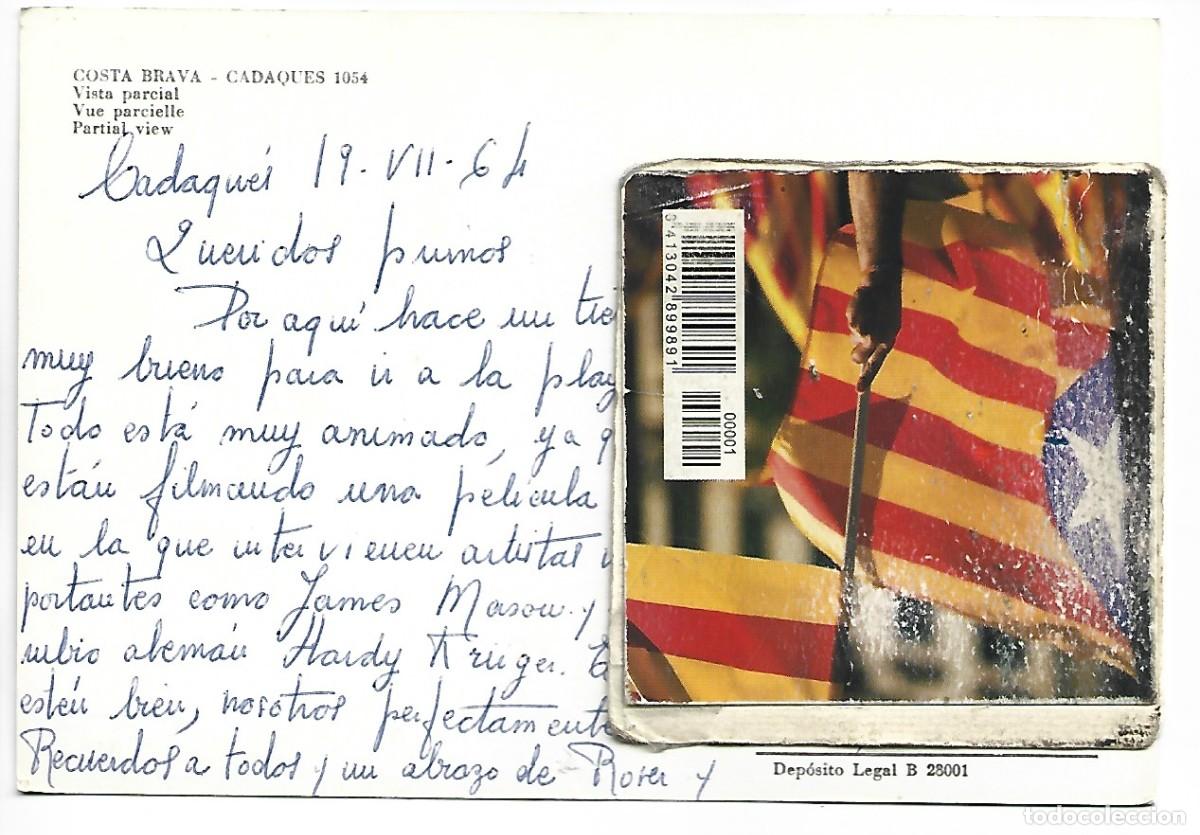 COSTA BRAVA - CADAQUES 1054
Vista parcial
Vue parcielle
Partial view
Cadaqués 19-VII-64
Queridos primos
Por aquí hace un tie
muy bueno para ir a la play
Todo está muy animado, ya q
están filmando una película
en la que intervienen artistas
portantes como James Mason y
rubio alemán Hardy Krüger. E
estén bien, nosotros perfectamente
Recuerdos a todos y un abrazo de Roser y
9 413042 899891
00001
Depósito Legal B 28001
todocoleccion